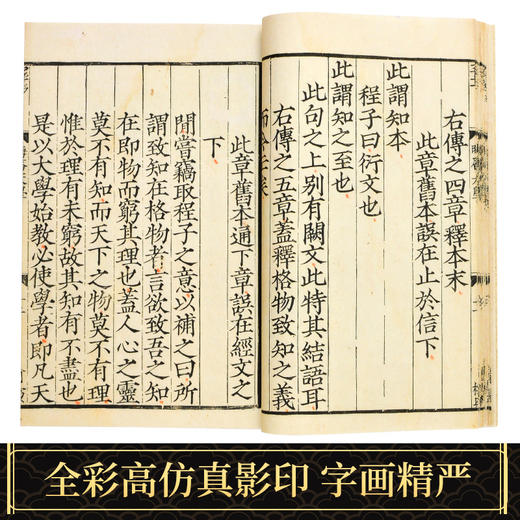 右傳之四章釋本末
此章舊本誤在止於信下
此謂知本
程子曰衍文也
此謂知之至也
此句之上別有闕文此特其結語耳
右傳之五章蓋釋格物致知之義
而今亡矣
此章舊本通下章誤在經文之
下
閒嘗竊取程子之意以補之曰所
謂致知在格物者言欲致吾之知
在即物而窮其理也蓋人心之靈
莫不有知而天下之物莫不有理
惟於理有未窮故其知有不盡也
是以大學始教必使學者即凡天
全彩高仿真影印 字画精严